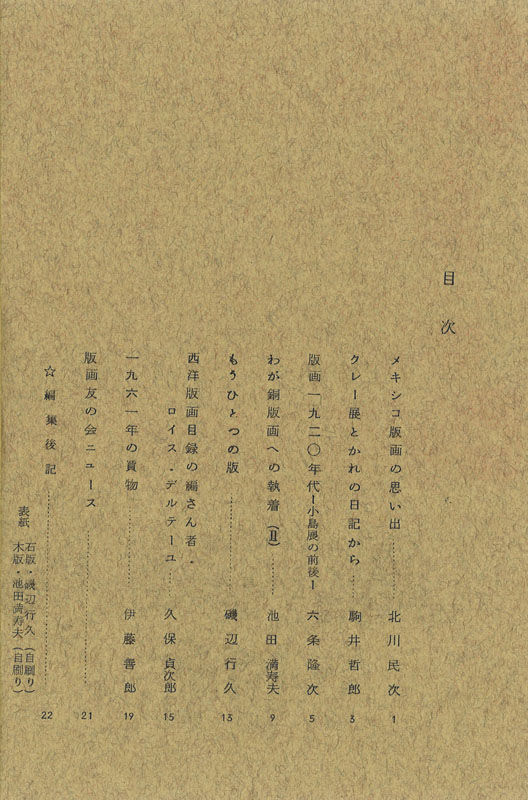 目次
メキシコ版画の思い出………北川民次 1
クレー展とかれの日記から………駒井哲郎 3
版画一九二〇年代ー小島展の前後ー 六条隆次 5
わが銅版画への執着(Ⅱ)………池田満寿夫 9
もうひとつの版………磯辺行久 13
西洋版画目録の編さん者・
ロイス・デルテーユ 久保貞次郎 15
一九六一年の買物………伊藤善郎 19
版画友の会ニュース………21
☆編集後記………22
表紙 石版・磯辺行久(自刷り)
木版・池田満寿夫(自刷り)